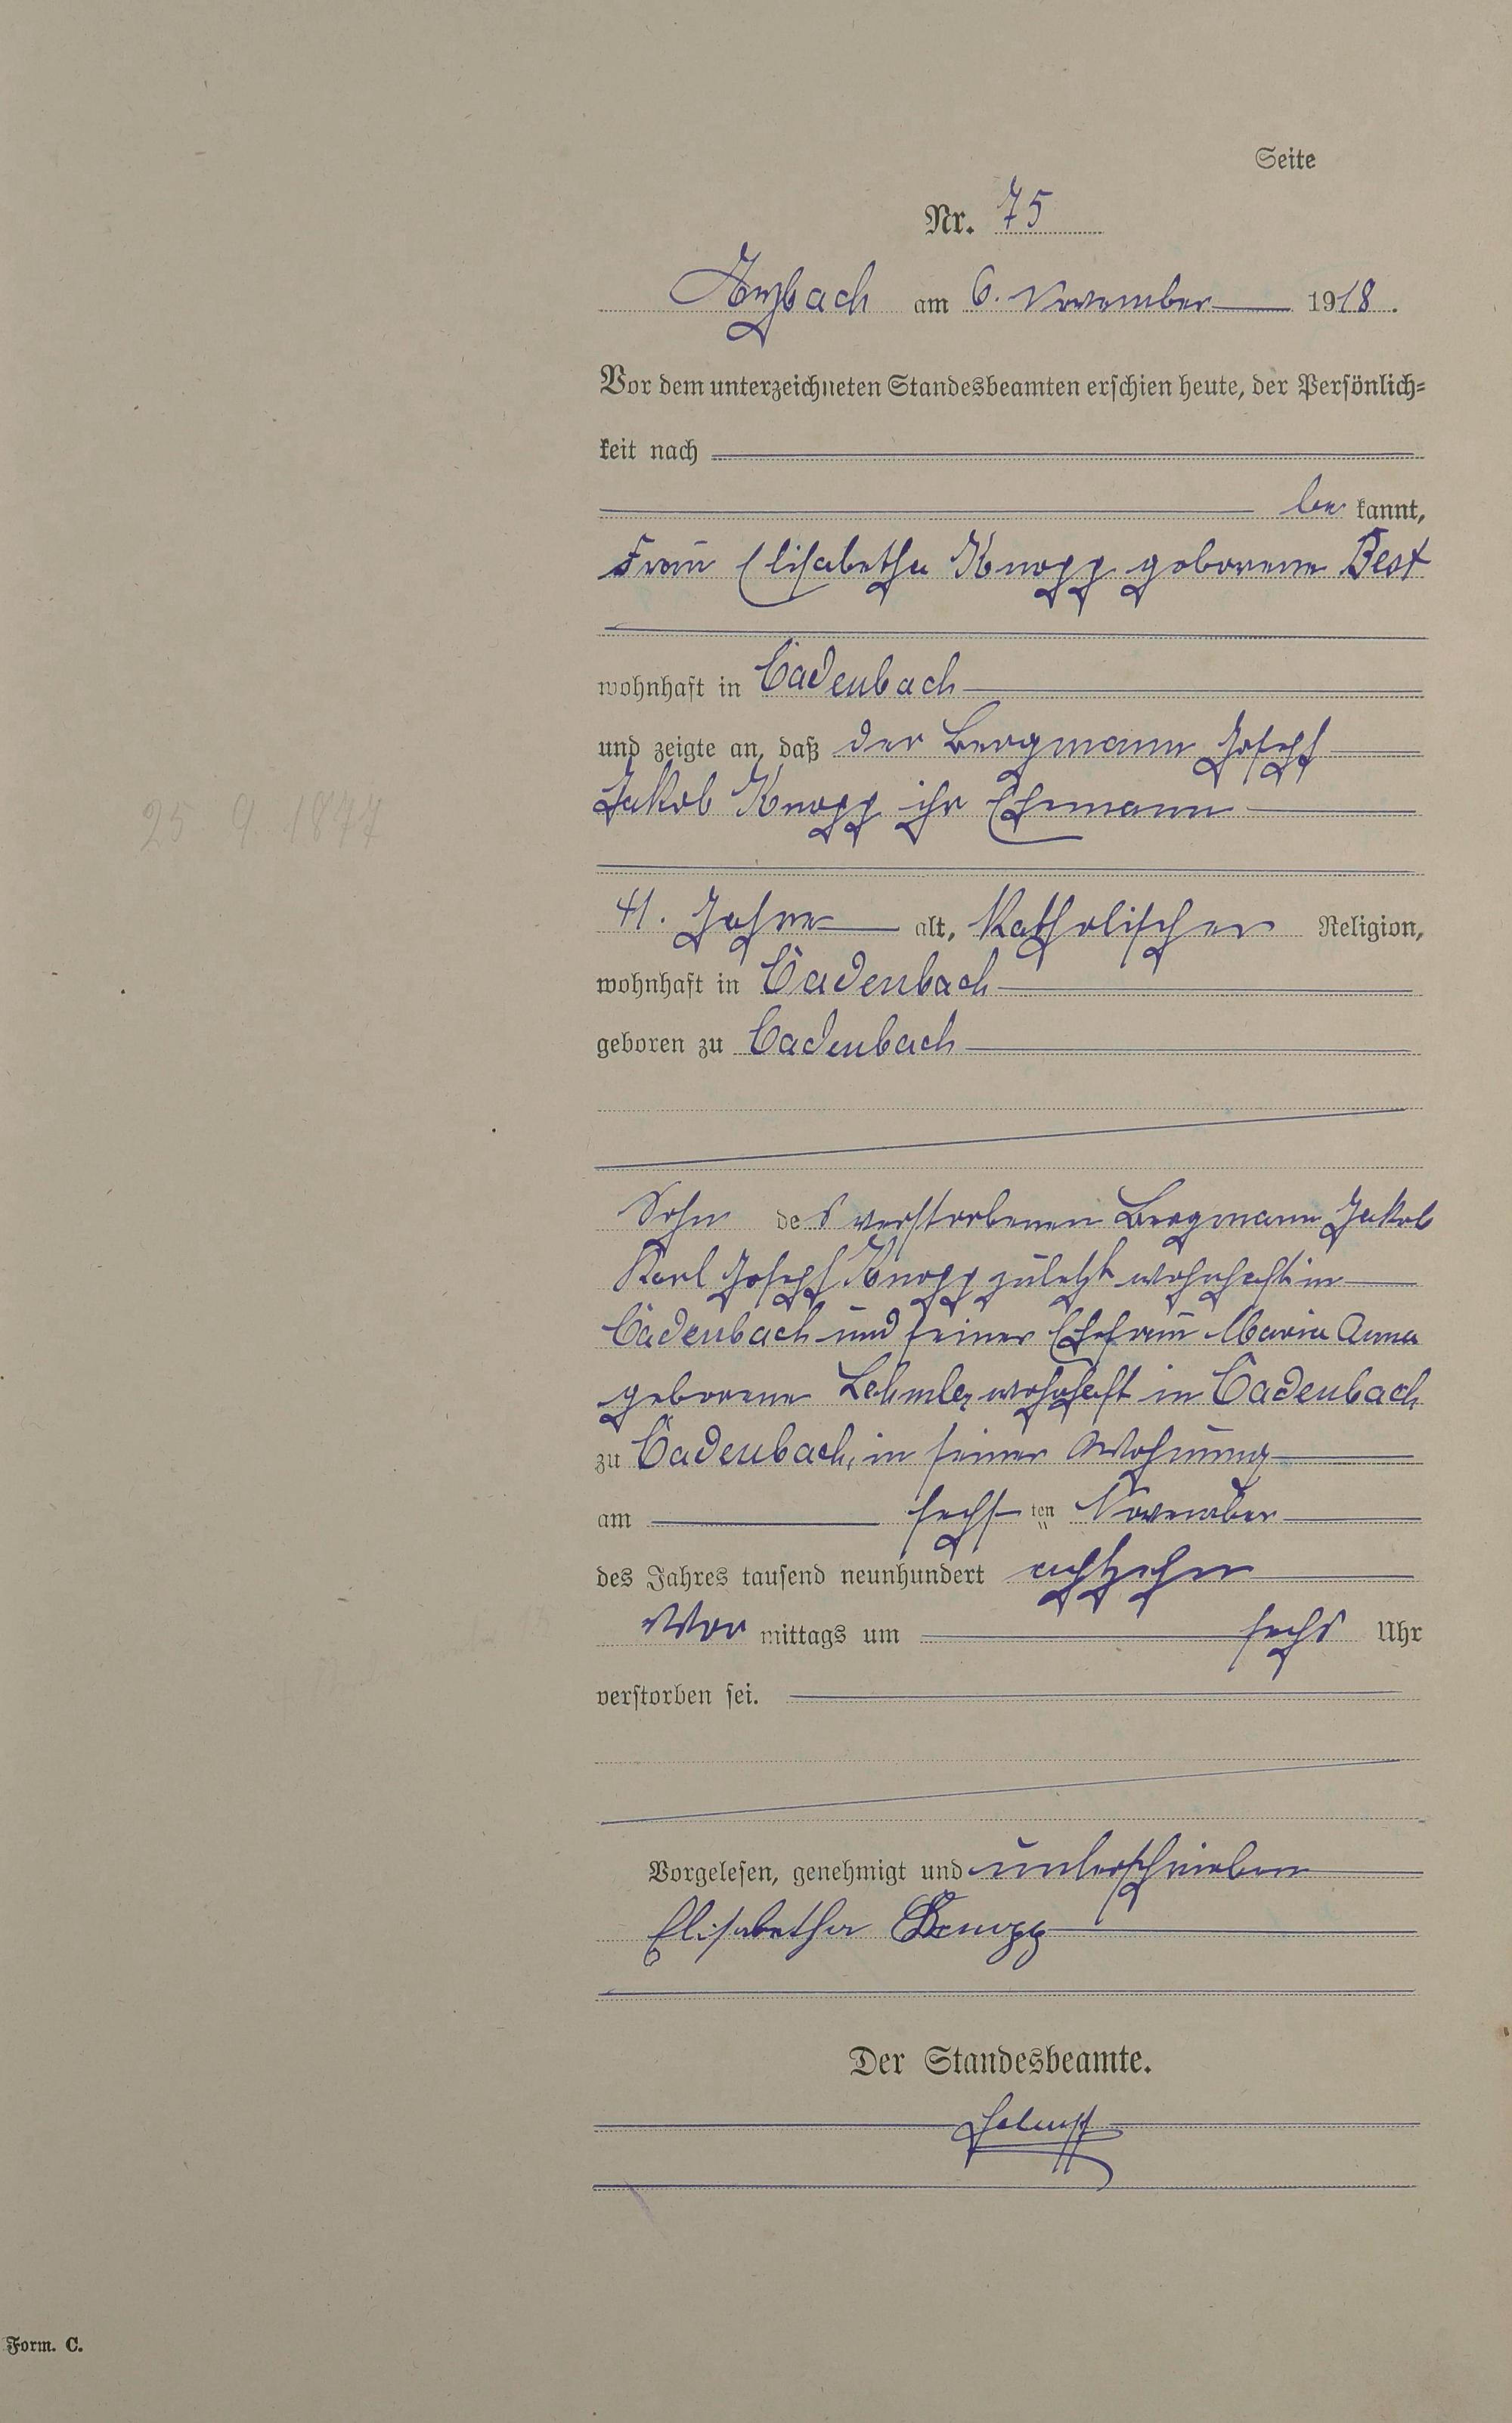 Seite
Nr. 75
Arzbach am 6. November 1918.
Vor dem unterzeichneten Standesbeamten erschien heute, der Persönlich-
keit nach
be kannt,
Frau Elisabetha Knopp geborene Best
wohnhaft in Cadenbach
und zeigte an, daß der Bergmann Joseph
Jakob Knopp ihr Ehemann
25 9. 1877
41. Jahre alt, Katholischer Religion,
wohnhaft in Cadenbach
geboren zu Cadenbach
Sohn des verstorbenen Bergmann Jakob
Karl Joseph Knopp zuletzt wohnhaft in
Cadenbach und seiner Ehefrau Maria Anna
geborene wohnhaft in Cadenbach
zu Cadenbach, in seiner Wohnung
am sechsten November
des Jahres tausend neunhundert achtzehn
Vor mittags um sechs Uhr
verstorben sei.
Vorgelesen, genehmigt und unterschrieben
Elisabetha Knopp
Der Standesbeamte.
Form. C.